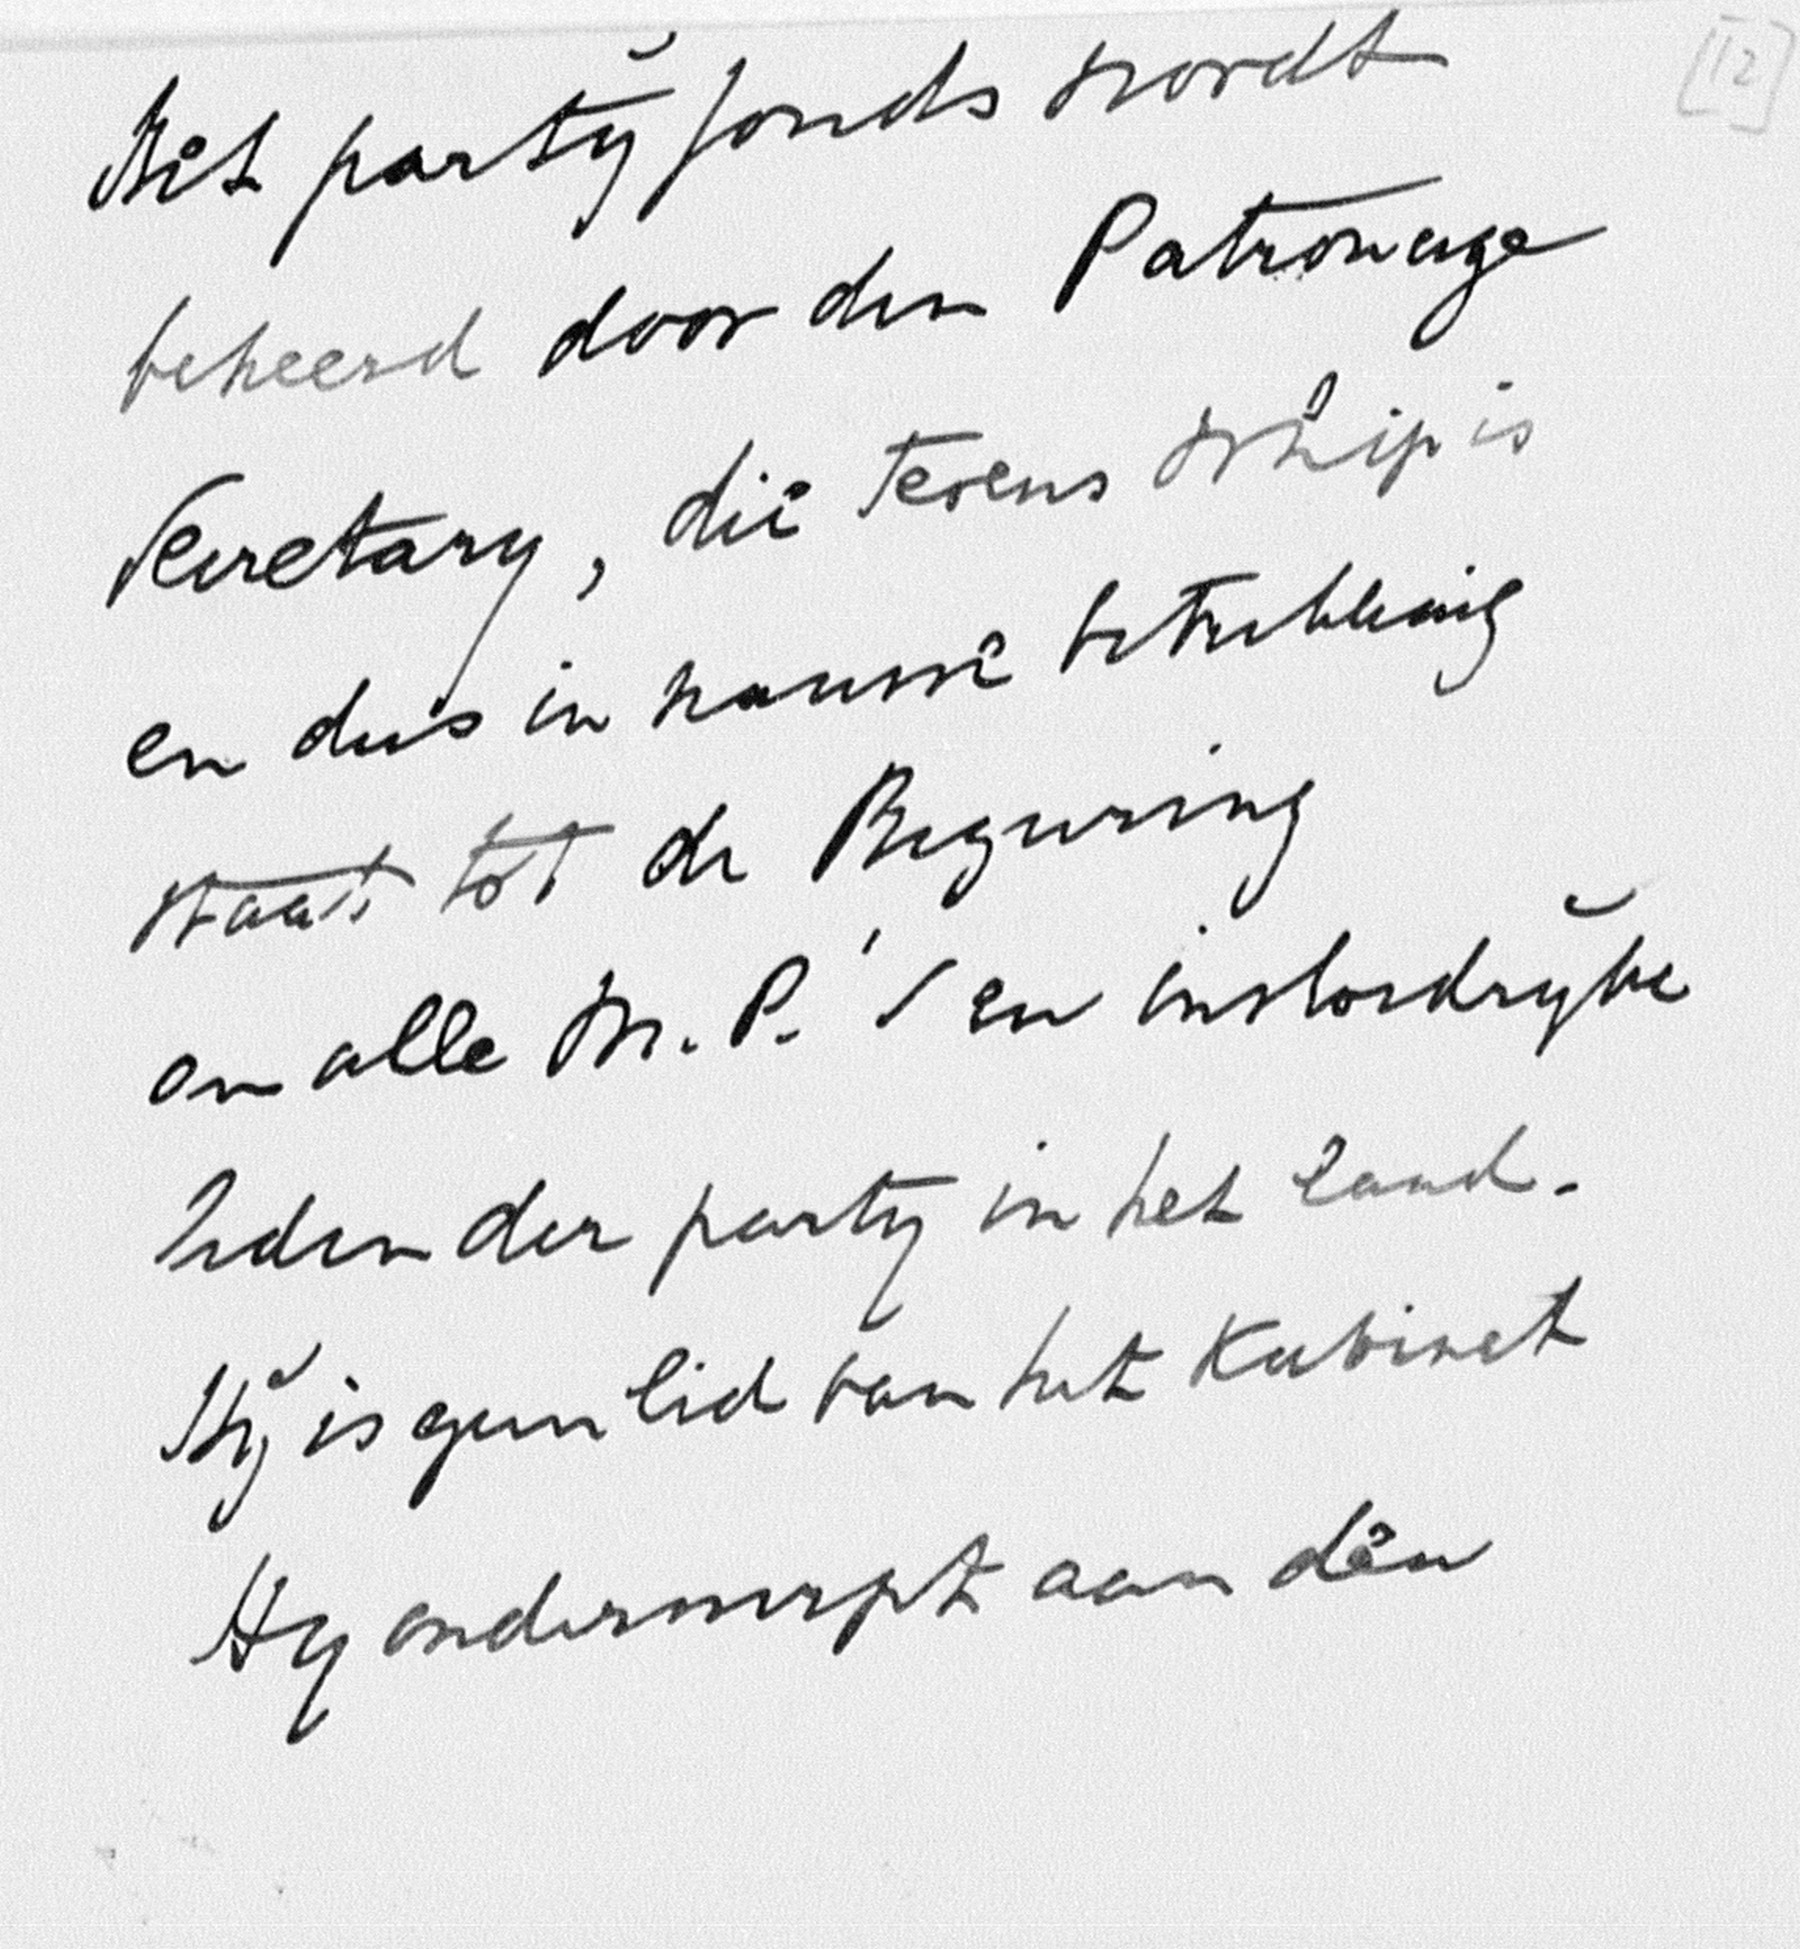 [12]
Het partijfonds wordt
beheerd door den Patronage
Secretary, die tevens Whip is
en dus in nauwe betrekking
staat tot de Regeering
en alle M.P.'s en invloedrijke
leden der party in het land.
Hij is geen lid van het Kabinet
Hy onderwerpt aan den